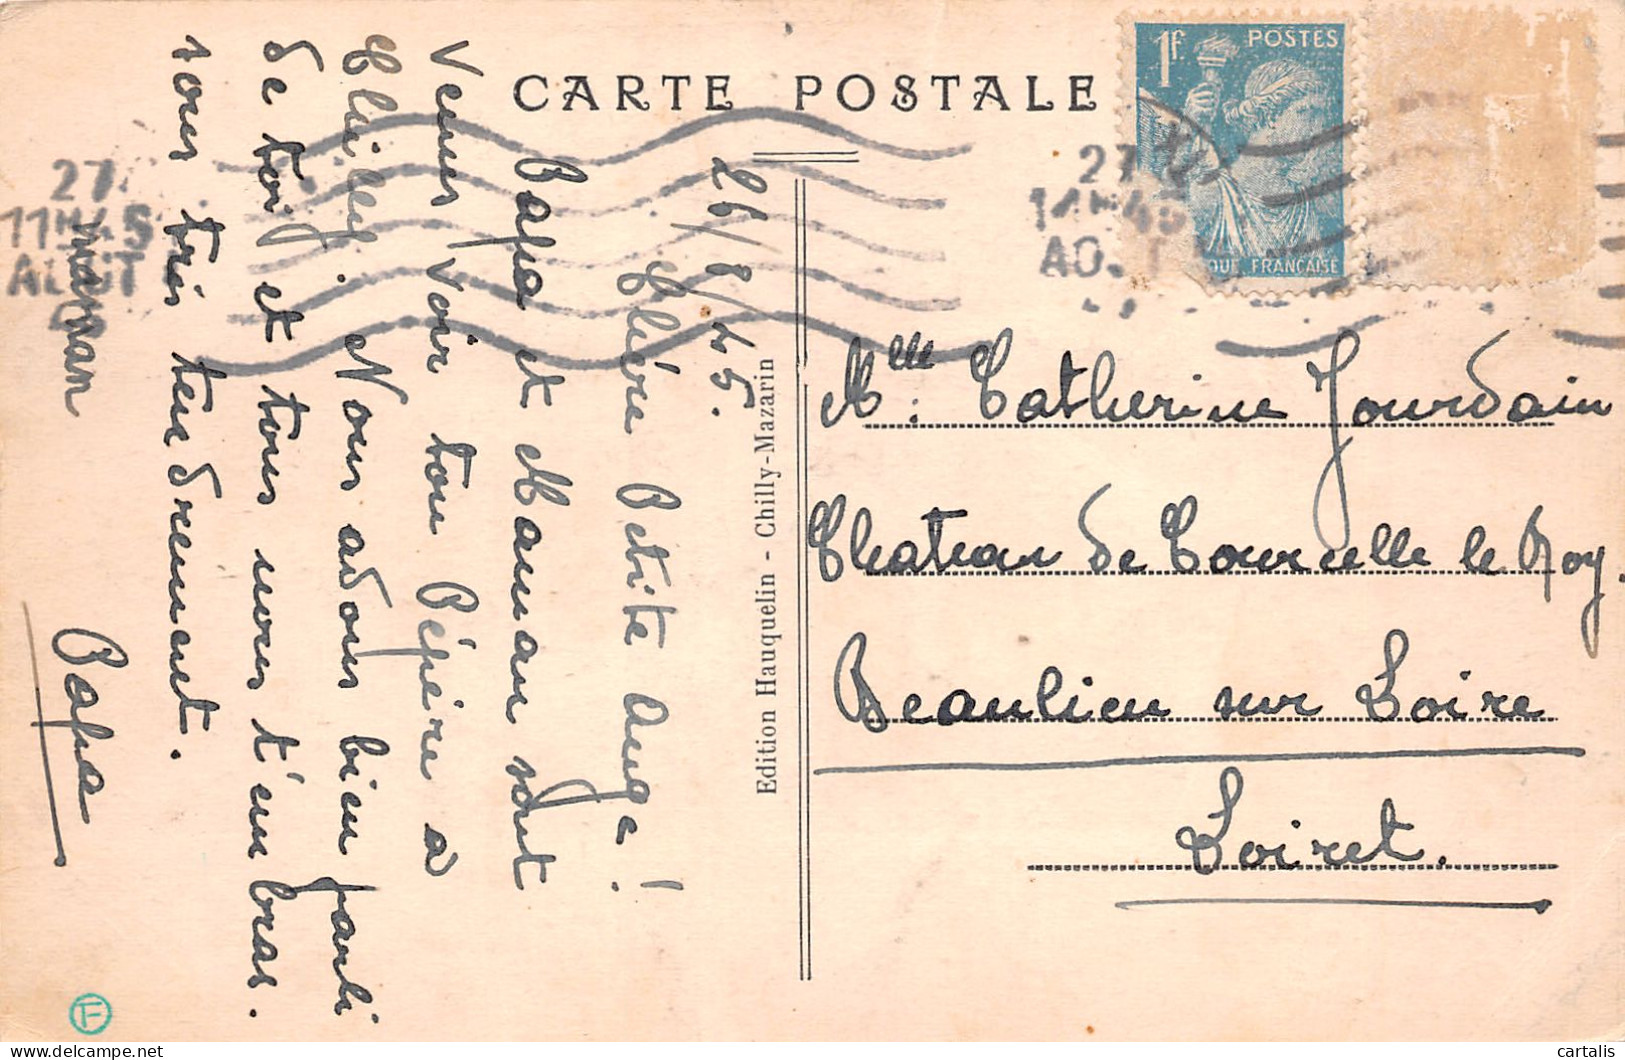 CARTE POSTALE
26/8/45.
Chère Petite Ange!
Papa et Maman sont
venus voir ton Pépère a
Chilly. Nous avons bien parlé
de toi et tous nous t'embras.
sons très tendrement.
maman
Papa
Edition Hauquelin - Chilly-Mazarin
1F. POSTES
QUE FRANÇAISE
27
11H45
AOUT
27
14H45
AOUT
Mlle Catherine Jourdain
Chateau de Courcelle le Roy.
Beaulieu sur Loire
Loiret.
F
cartalis